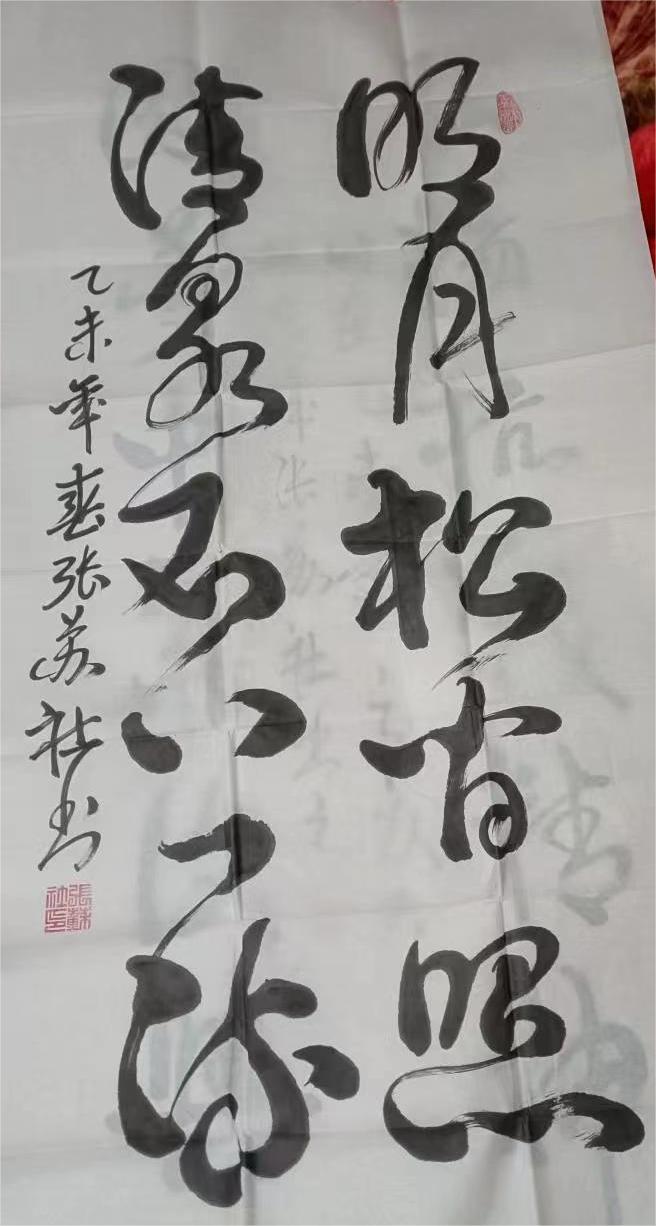 明月松间照
清泉石上流
乙未年春张苏社书
张苏社印